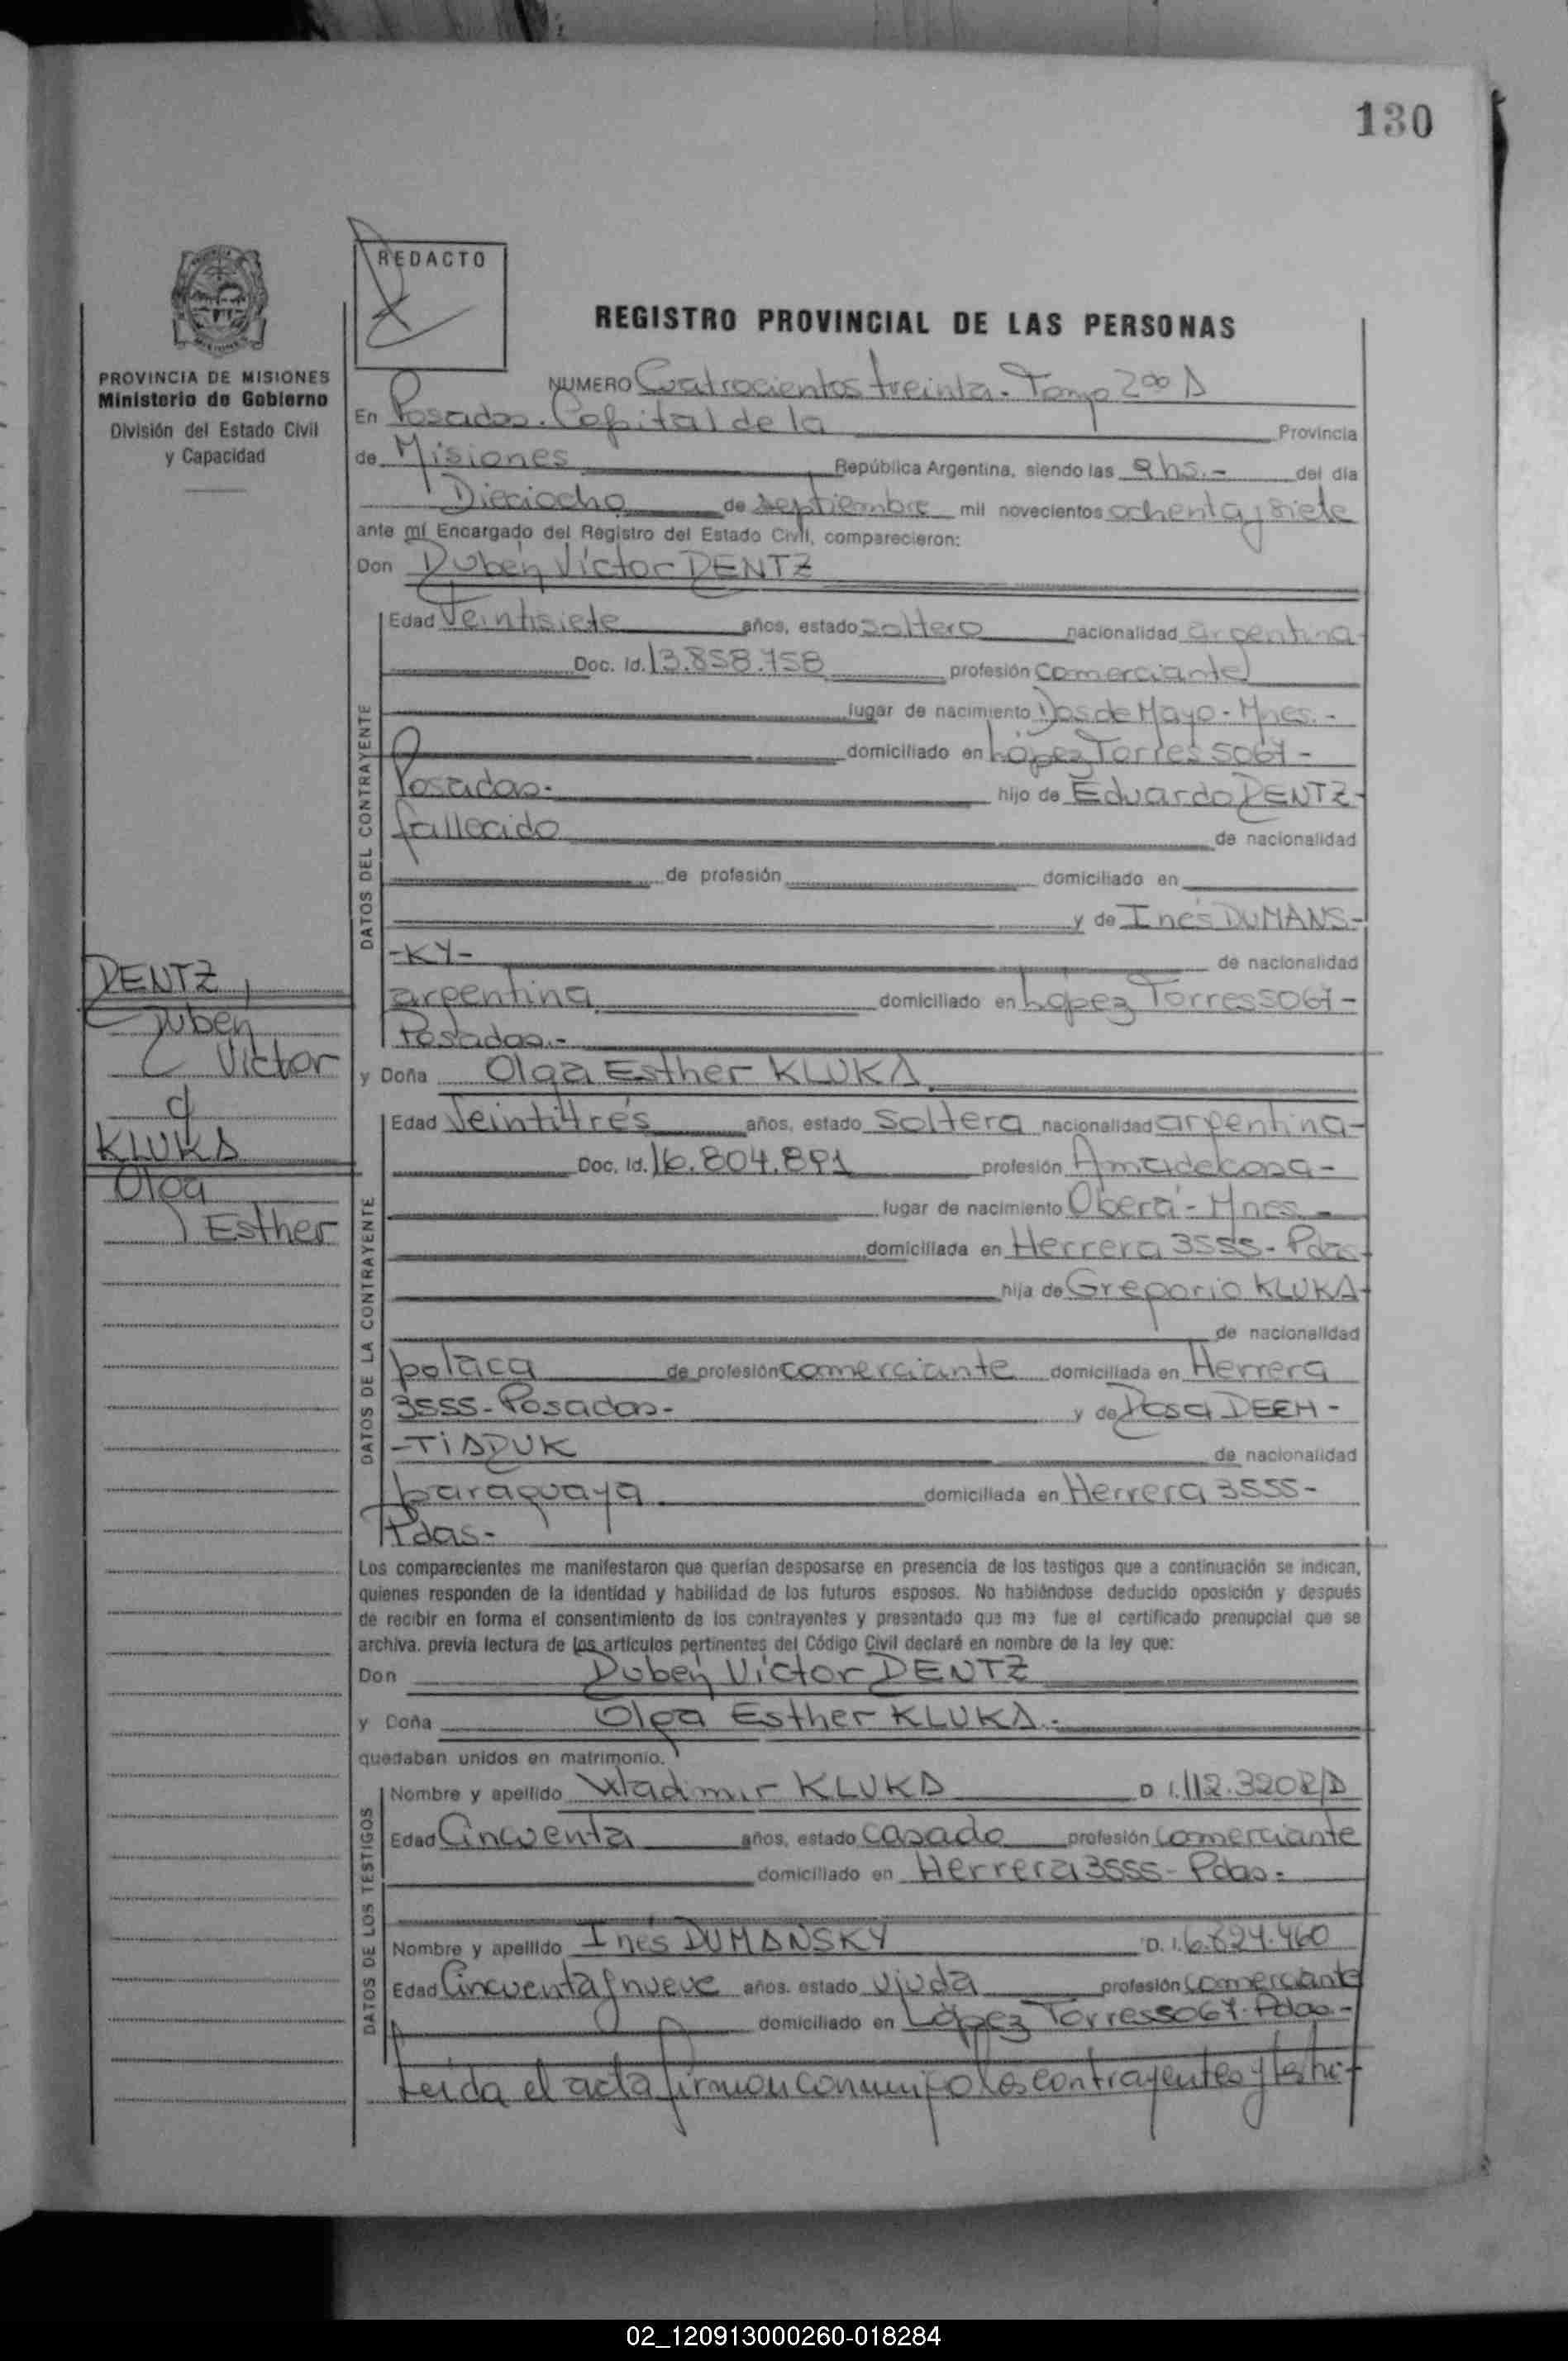 130
REDACTO
REGISTRO PROVINCIAL DE LAS PERSONAS
PROVINCIA DE MISIONES
Ministerio de Gobierno
División del Estado Civil
y Capacidad
NUMERO Cuatrocientos treinta. Tomo 2º A
En Posadas. Capital de la Provincia
de Misiones República Argentina, siendo las 9 hs.- del día
Dieciocho de septiembre mil novecientos ochenta y siete
ante mí Encargado del Registro del Estado Civil, comparecieron:
Don Ruben Víctor DENTZ
Edad Veintisiete años, estado soltero nacionalidad argentina
Doc. Id. 13.858.758 profesión comerciante
lugar de nacimiento Dos de Mayo - Mnes. -
domiciliado en López Torres 5067 -
Posadas. hijo de Eduardo DENTZ -
fallecido de nacionalidad
de profesión domiciliado en
y de Inés DUMANS-
-KY- de nacionalidad
argentina domiciliado en López Torres 5067 -
Posadas.-
y Doña Olga Esther KLUKA
Edad Veintitrés años, estado soltera nacionalidad argentina-
Doc. Id. 16.804.891 profesión Ama de casa -
lugar de nacimiento Oberá - Mnes. -
domiciliada en Herrera 3555 - Pdas
hija de Gregorio KLUKA-
de nacionalidad
polaca de profesión comerciante domiciliada en Herrera
3555 - Posadas - y de Rosa DEEH -
-TIARUK de nacionalidad
paraguaya domiciliada en Herrera 3555 -
Pdas-
Los comparecientes me manifestaron que querían desposarse en presencia de los testigos que a continuación se indican,
quienes responden de la identidad y habilidad de los futuros esposos. No habiéndose deducido oposición y después
de recibir en forma el consentimiento de los contrayentes y presentado que me fue el certificado prenupcial que se
archiva. previa lectura de los artículos pertinentes del Código Civil declaré en nombre de la ley que:
Don Ruben Víctor DENTZ
y Doña Olga Esther KLUKA.-
quedaban unidos en matrimonio.
Nombre y apellido Wladimir KLUKA D I. 112.3202/A
Edad Cincuenta años, estado casado profesión comerciante
domiciliado en Herrera 3555 - Pdas.-
Nombre y apellido Inés DUMANSKY D. I. 6.824.460
Edad Cincuenta y nueve años. estado viuda profesión comerciante
domiciliado en López Torres 5067. Pdas.-
Leida el acta firman conmigo los contrayentes y testi-
DATOS DEL CONTRAYENTE
DATOS DE LA CONTRAYENTE
DATOS DE LOS TESTIGOS
DENTZ,
Ruben
Victor
c/
KLUKA
Olga
Esther
02_120913000260-018284